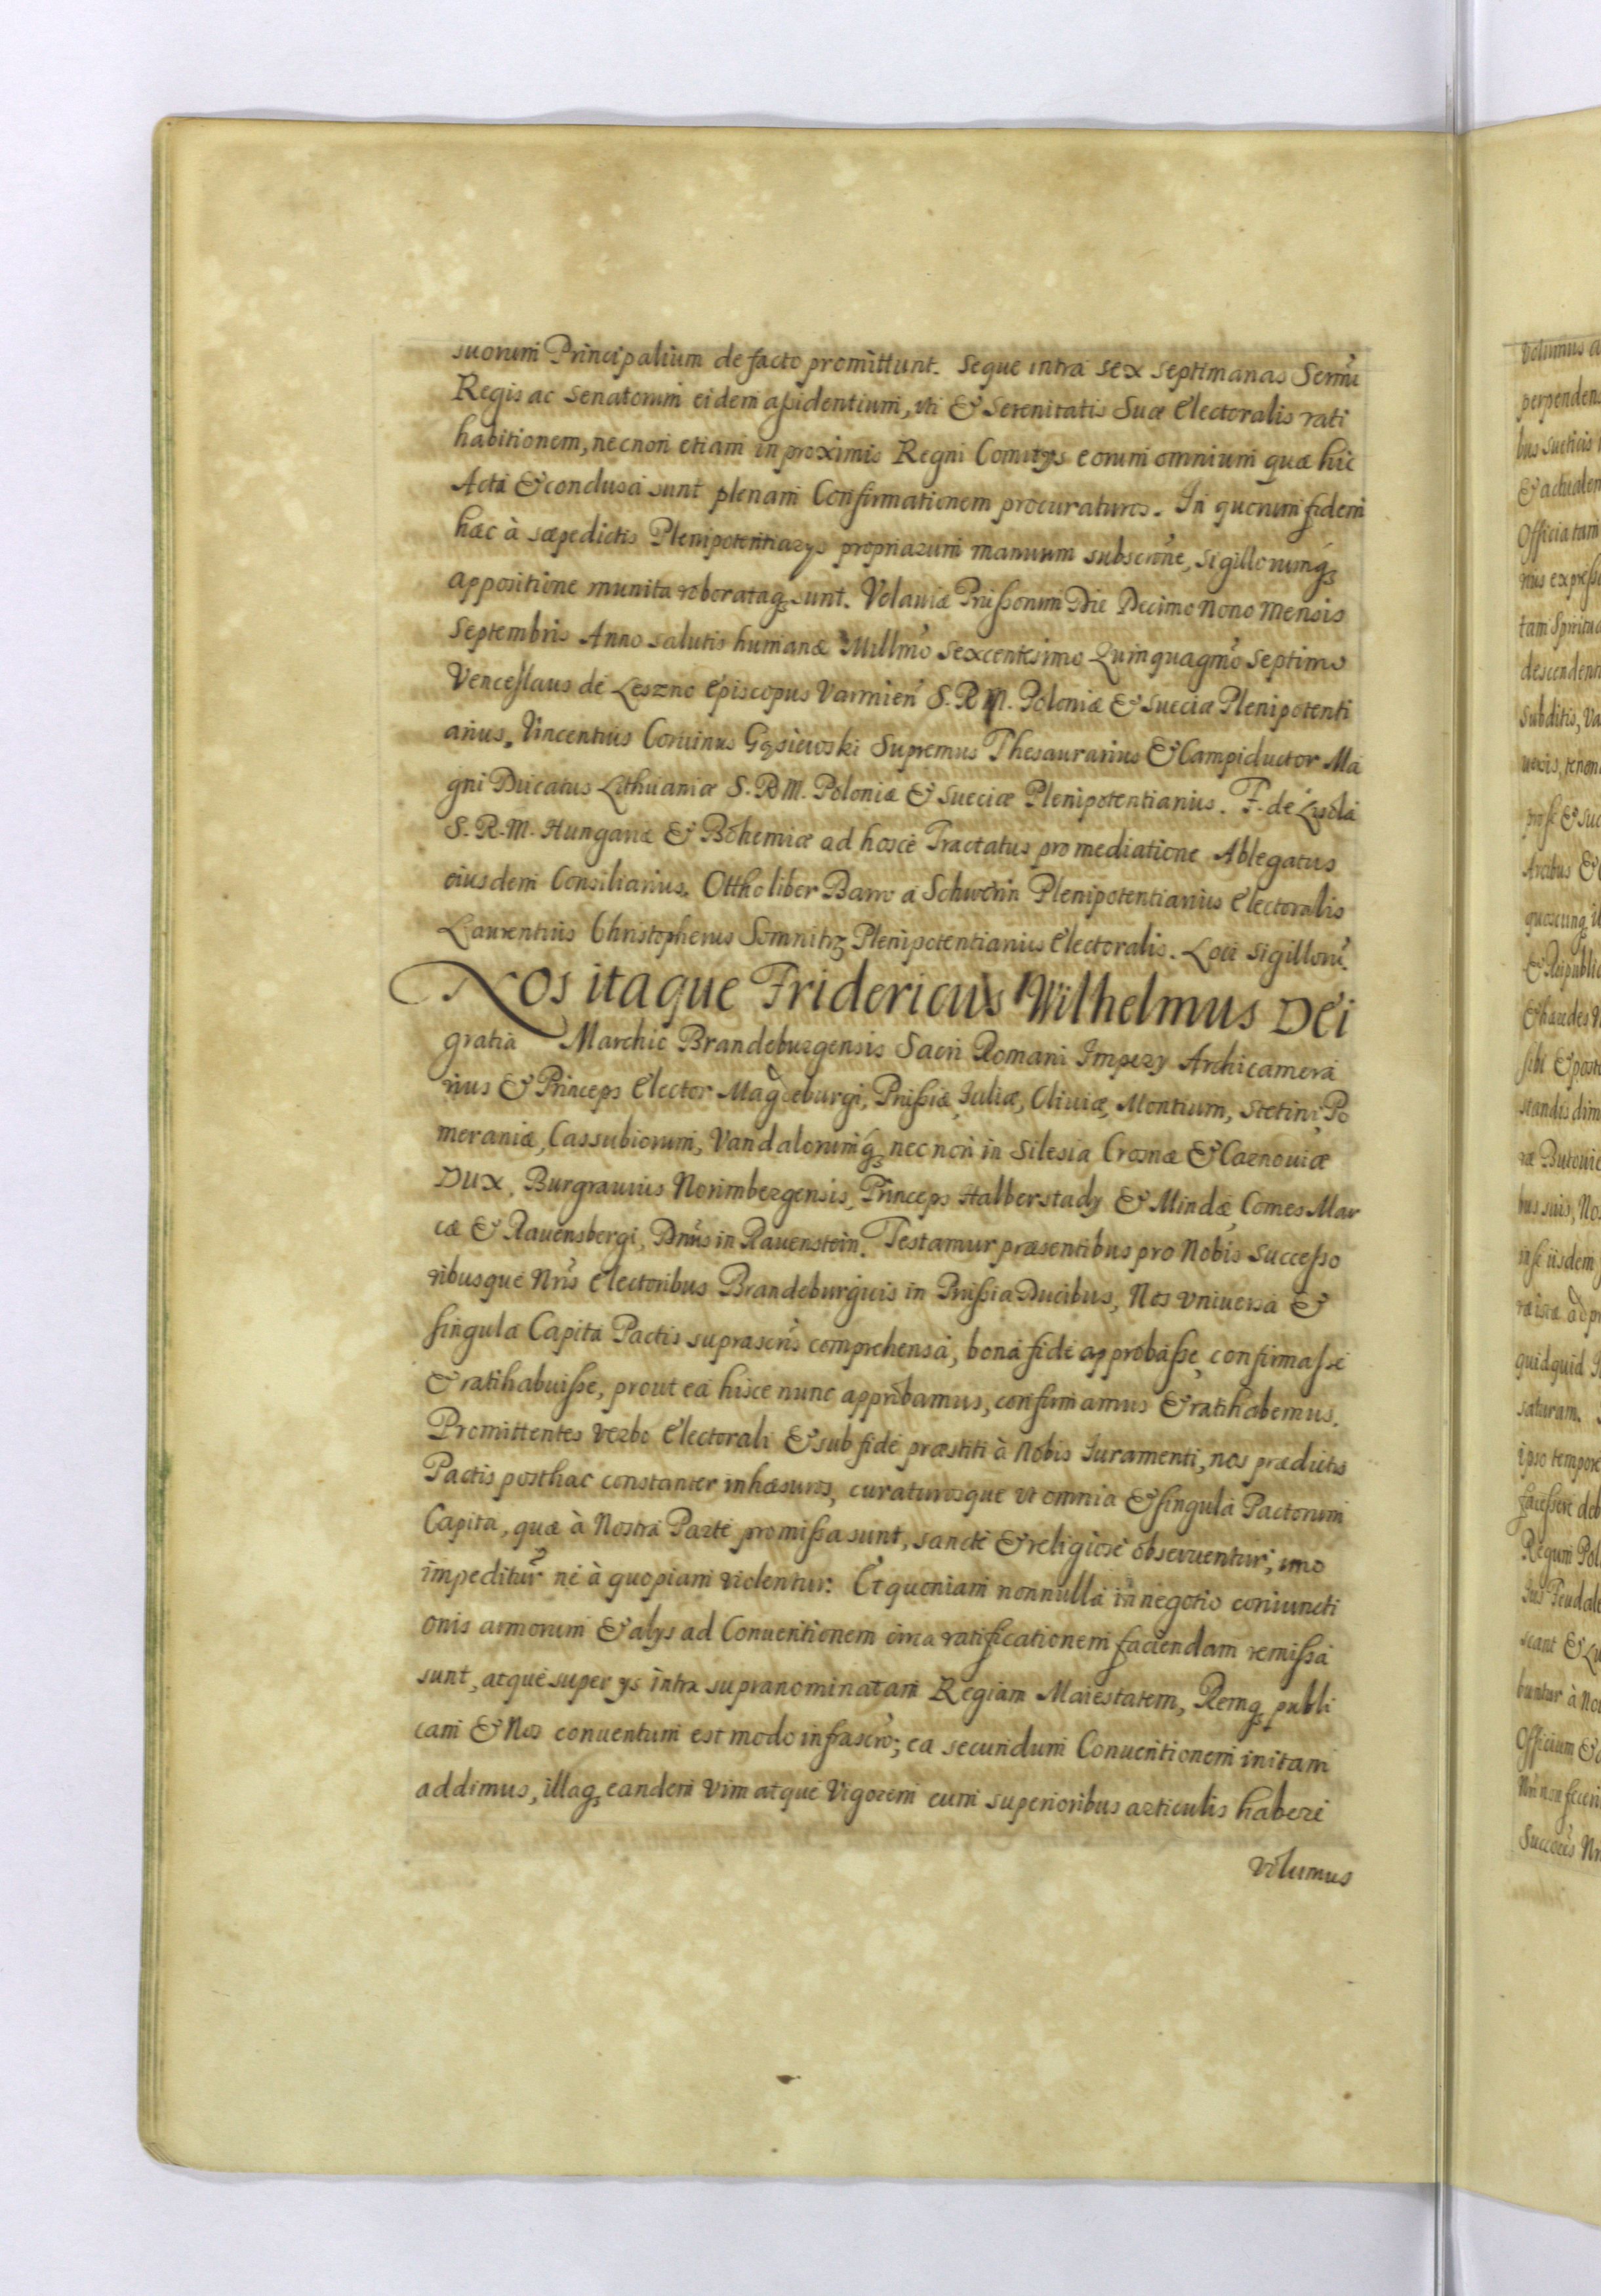 suorum Principalium de facto promittunt. Seque intra sex septimanas Sermi
Regis ac Senatorum eidem assidentium, uti & Serenitatis Suæ Electoralis rati
habitionem, necnon etiam in proximis Regni Comitys eorum omnium quæ hic
Acta & conclusa sunt plenam Confirmationem procuraturos. In quorum fidem
hæc à sæpedictis Plenipotentiarys propriarum manuum subscrone, sigillorumq
appositione munita roborataq sunt. Velaviæ Prussorum Die Decimo Nono Mensis
Septembris Anno salutis humanæ Millmo Sexcentesimo Quinquagmo Septimo
Venceslaus de Leszno Episcopus Varmien S. R M. Poloniæ & Sueciæ Plenipotenti
arius. Vincentius Corvinus Gąsiewski Supremus Thesaurarius & Campiductor Ma
gni Ducatus Lithuaniæ S. R M. Poloniæ & Sueciæ Plenipotentiarius. F. de Lisola
S. R. M. Hungariæ & Bohemiæ ad hosce Tractatus pro mediatione Ablegatus
eiusdem Consiliarius. Ottho liber Barro a Schwerin Plenipotentiarius Electoralis
Laurentius Christopherus Somnitz Plenipotentiarius Electoralis. Loci Sigilloru.
Nos itaque Fridericus Wilhelmus Dei
gratia Marchio Brandeburgensis Sacri Romani Impery Archicamera
rius & Princeps Elector Magdeburgi, Prussiæ Juliæ, Cliviæ, Montium, Stetini, Po
meraniæ, Cassubiorum, Vandalorumq necnon in Silesia Crosnæ & Carnoviæ
Dux, Burgravius Norimbergensis, Princeps Halberstady & Mindæ Comes Mar
cæ & Ravensbergi, Dnus in Ravenstein. Testamur præsentibus pro Nobis Successo
ribusque Nris Electoribus Brandeburgicis in Prussia Ducibus, Nos Vniversa &
singula Capita Pactis suprascris comprehensa, bona fide approbasse, confirmasse
& ratihabuisse, prout ea hisce nunc approbamus, confirmamus & ratihabemus.
Promittentes verbo Electorali & sub fide præstiti à Nobis Iuramenti, nos prædictis
Pactis posthac constanter inhæsuros, curaturosque vt omnia & singula Pactorum
Capita, quæ à Nostra Parte promissa sunt, sancte & religiose observentur, imo
impeditur ne à quopiam violentur. Et quoniam nonnulla in negotio coniuncti
onis armorum & alys ad Conventionem circa ratificationem faciendam remissa
sunt, atque super ys intra supranominatam Regiam Maiestatem, Remq publi
cam & Nos conventum est modo infrascro; ea secundum Conventionem initam
addimus, illaq eandem vim atque Vigorem cum superioribus articulis habere
volumus